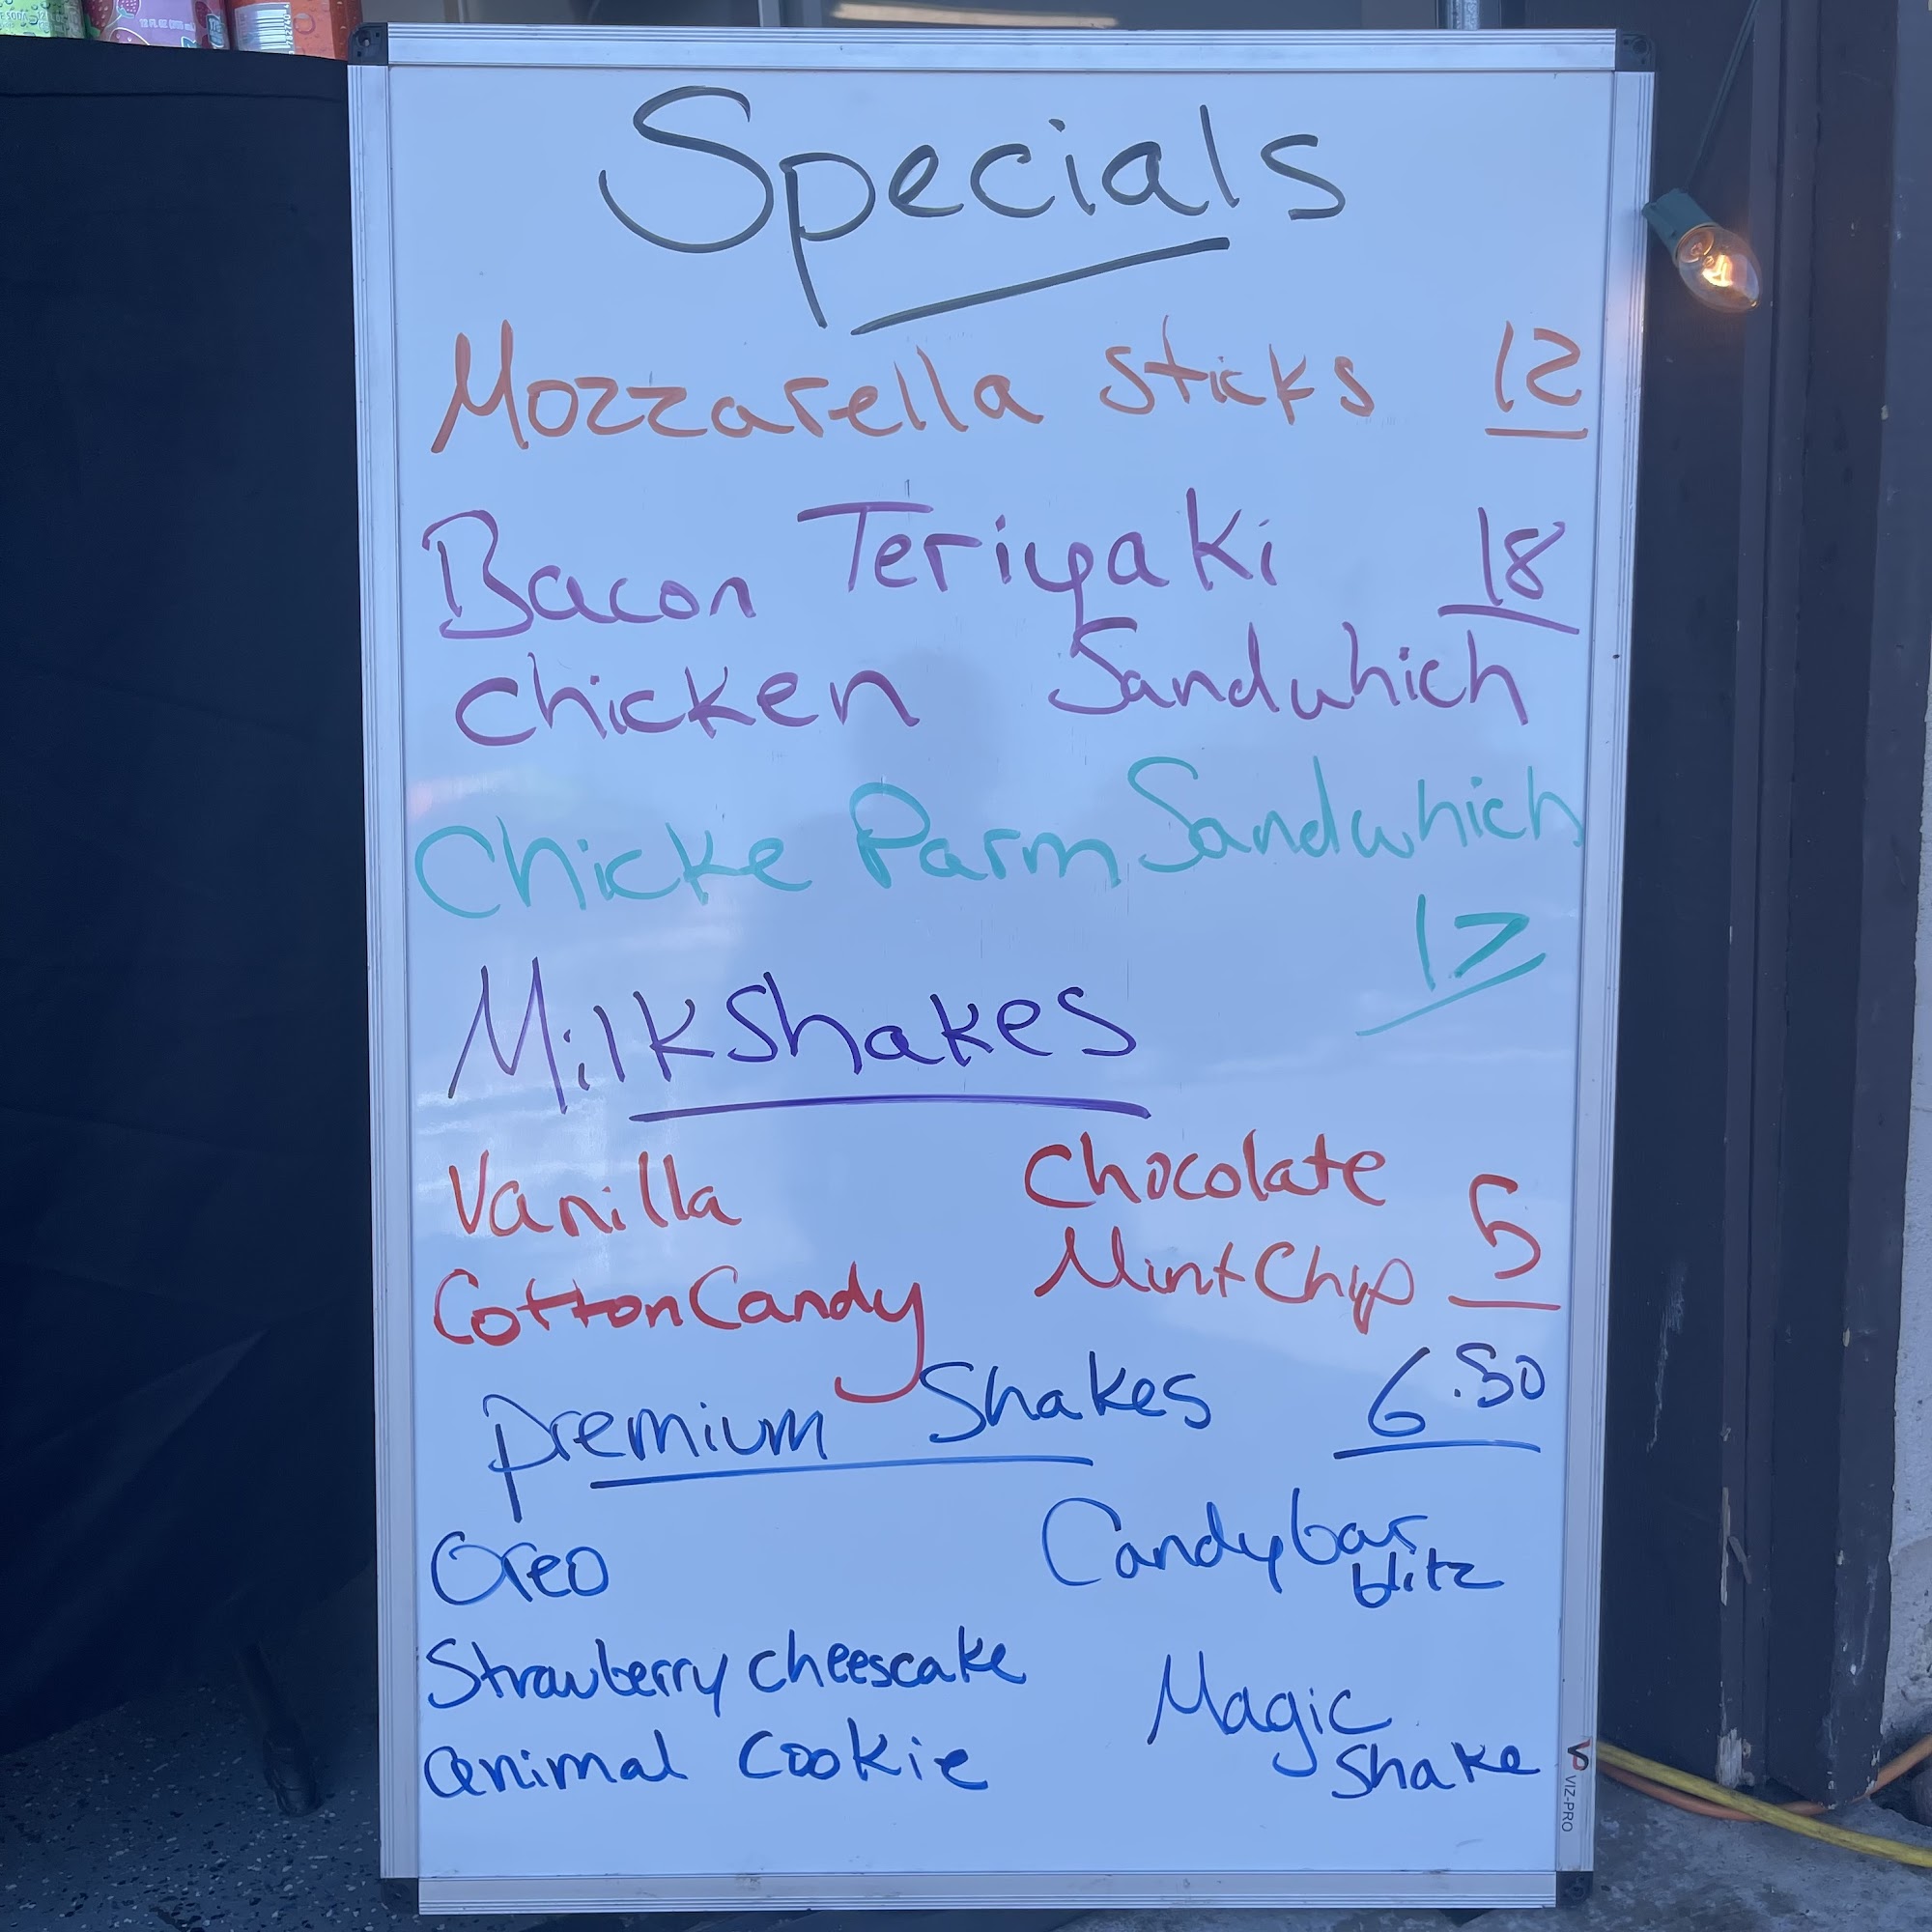 Specials
Mozzarella Sticks 12
Bacon Teriyaki 18
Chicken Sandwhich
Chicke Parm Sandwhich
17
Milkshakes
Vanilla Chocolate
Cotton Candy Mint Chip 5
Premium Shakes 6.50
Oreo Candybar
blitz
Strawberry cheescake Magic
animal Cookie Shake
VIZ-PRO